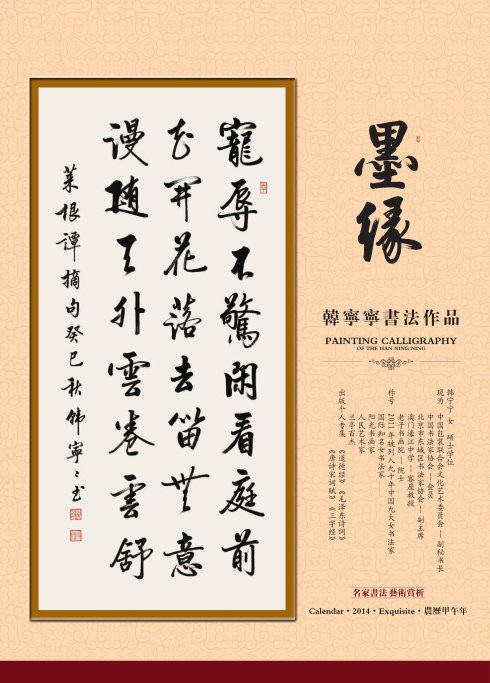 寵辱不驚閑看庭前
花開花落去留無意
谩随天外雲卷雲舒
菜根譚摘句癸巳秋韩寧〻书
墨缘
韓寧寧書法作品
PAINTING CALLIGRAPHY
OF THE HAN NING NING
韩宁宁 女 硕士学位
现为 中国包装联合会文化艺术委员会—副秘书长
中国书法家协会—会员
北京市东城区书法家协会—副主席
澳门濠江中学—客座教授
老子书画院—院士
称号 2011年被列入九十年中国九大女书法家
国际知名女书法家
阳光书画家
人民艺术家
兰亭百杰
出版个人专集 《道德经》《毛泽东诗词》
《唐诗宋词赋》《三字经》
名家書法 藝術賞析
Calendar·2014·Exquisite·農曆甲午年